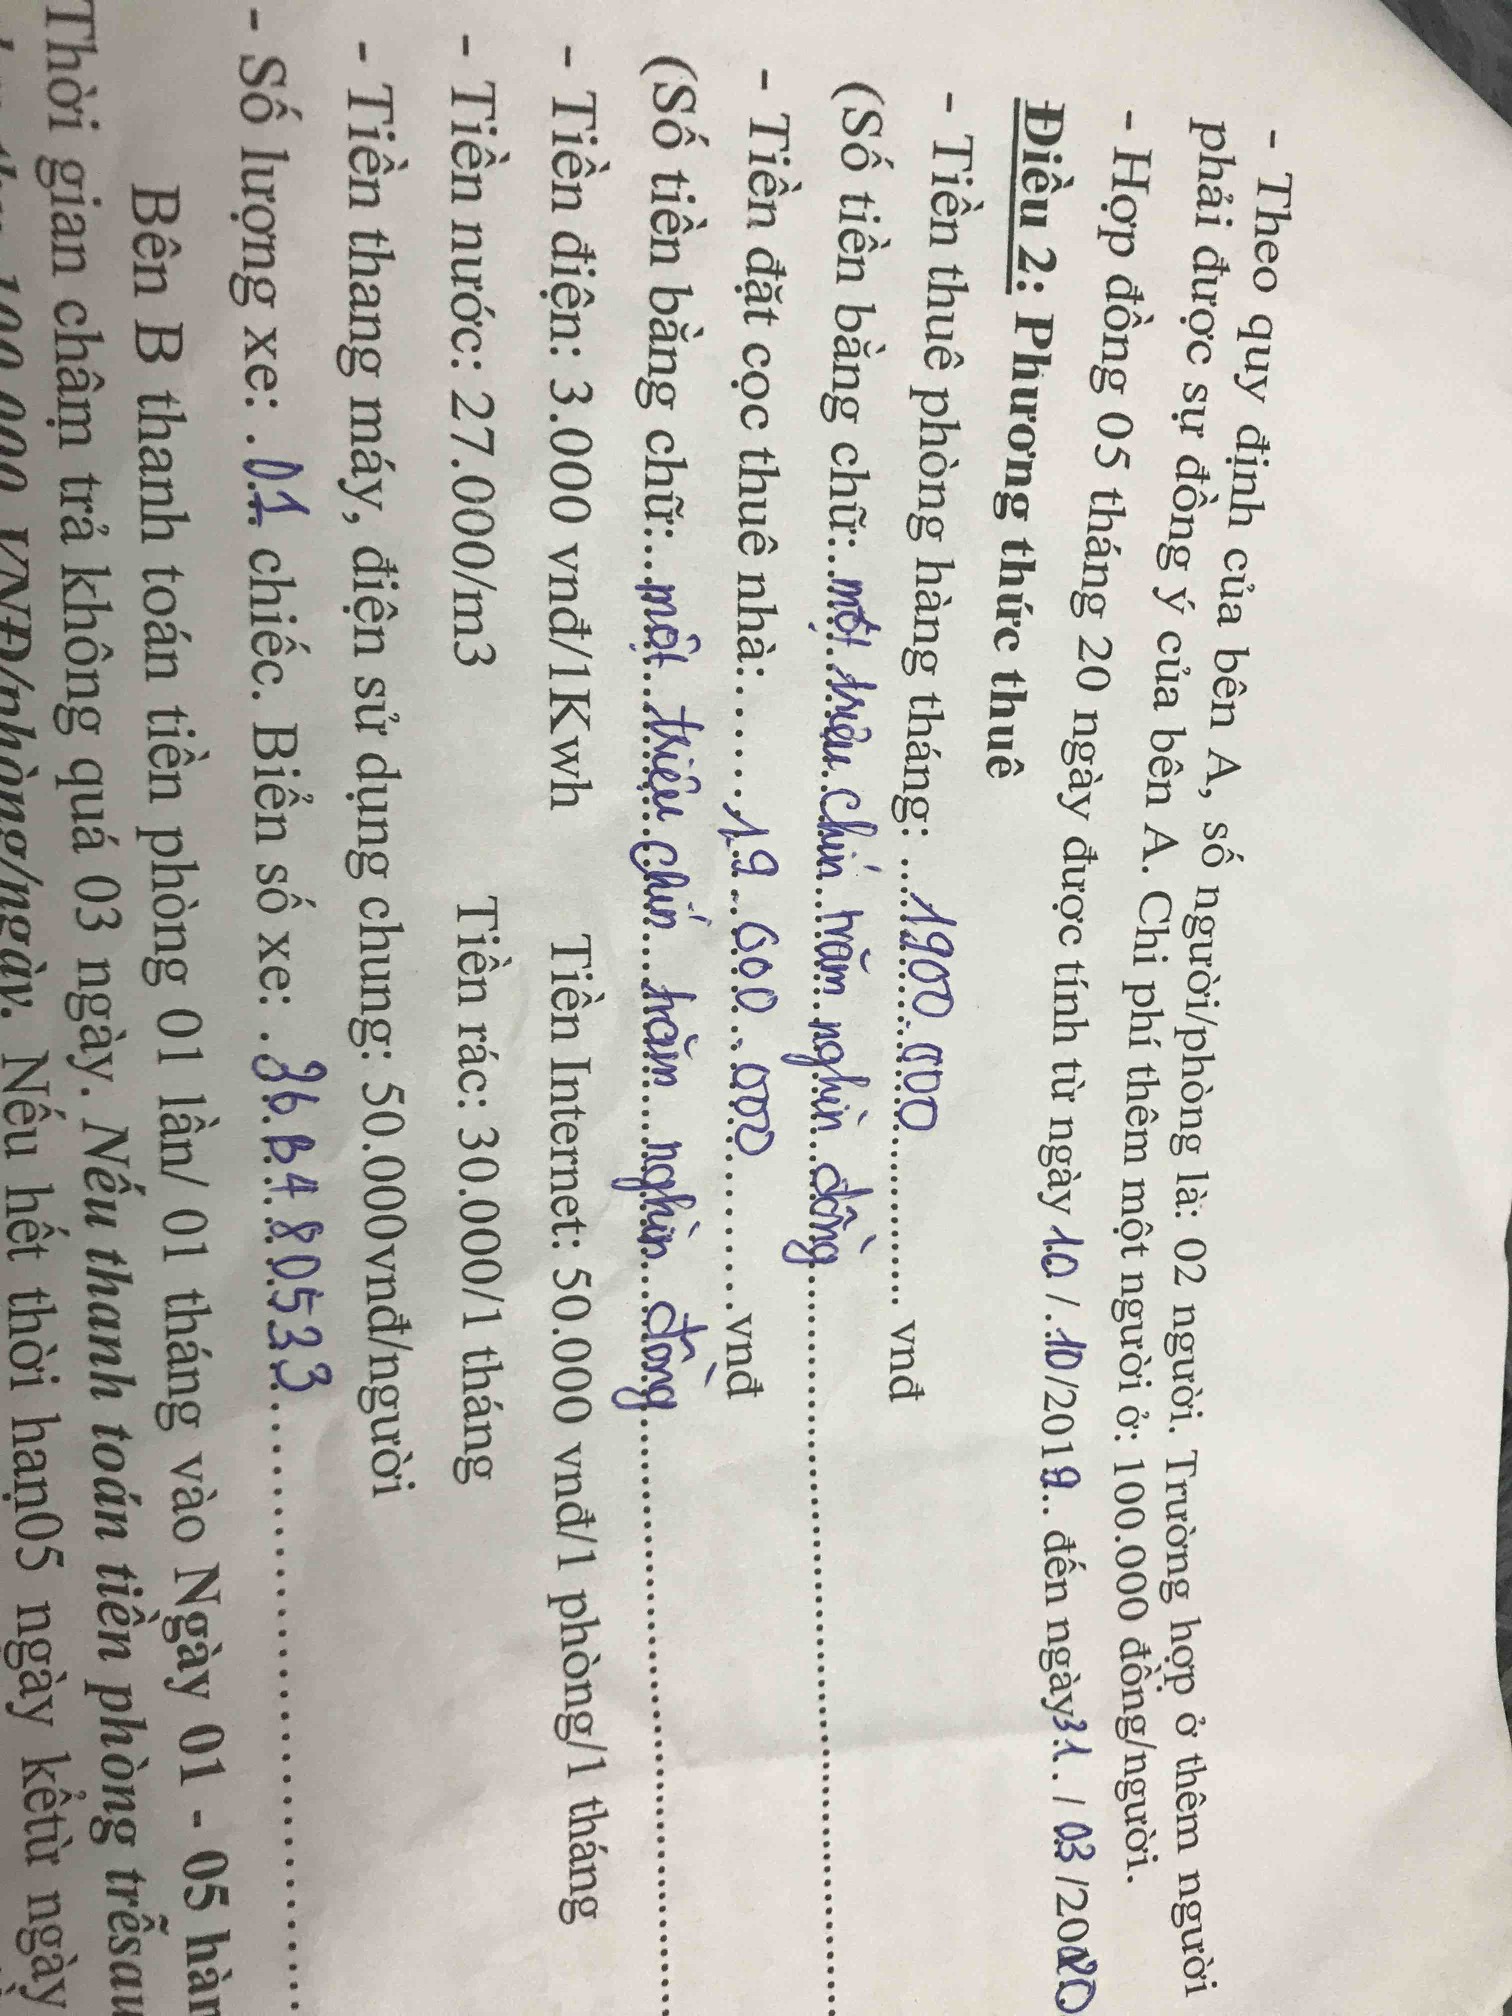 - Theo quy định của bên A, số người/phòng là: 02 người. Trường hợp ở thêm người
phải được sự đồng ý của bên A. Chi phí thêm một người ở: 100.000 đồng/người.
- Hợp đồng 05 tháng 20 ngày được tính từ ngày 10 / 10/2019... đến ngày 31.. / 03 /2020
Điều 2: Phương thức thuê
- Tiền thuê phòng hàng tháng: ....1900.000.............. vnđ
(Số tiền bằng chữ:..một triệu chín trăm nghìn đồng..............................
- Tiền đặt cọc thuê nhà:.......19..000...000..........vnđ
(Số tiền bằng chữ:...một triệu chín trăm nghìn đồng..............................
- Tiền điện: 3.000 vnđ/1Kwh Tiền Internet: 50.000 vnđ/1 phòng/1 tháng
- Tiền nước: 27.000/m3 Tiền rác: 30.000/1 tháng
- Tiền thang máy, điện sử dụng chung: 50.000vnđ/người
- Số lượng xe: .01 chiếc. Biển số xe: .36 B4 80533..............................
Bên B thanh toán tiền phòng 01 lần/ 01 tháng vào Ngày 01 - 05 hàn
Thời gian chậm trả không quá 03 ngày. Nếu thanh toán tiền phòng trễsau
100.000 VNĐ/phòng/ngày. Nếu hết thời hạn05 ngày kểtừ ngày